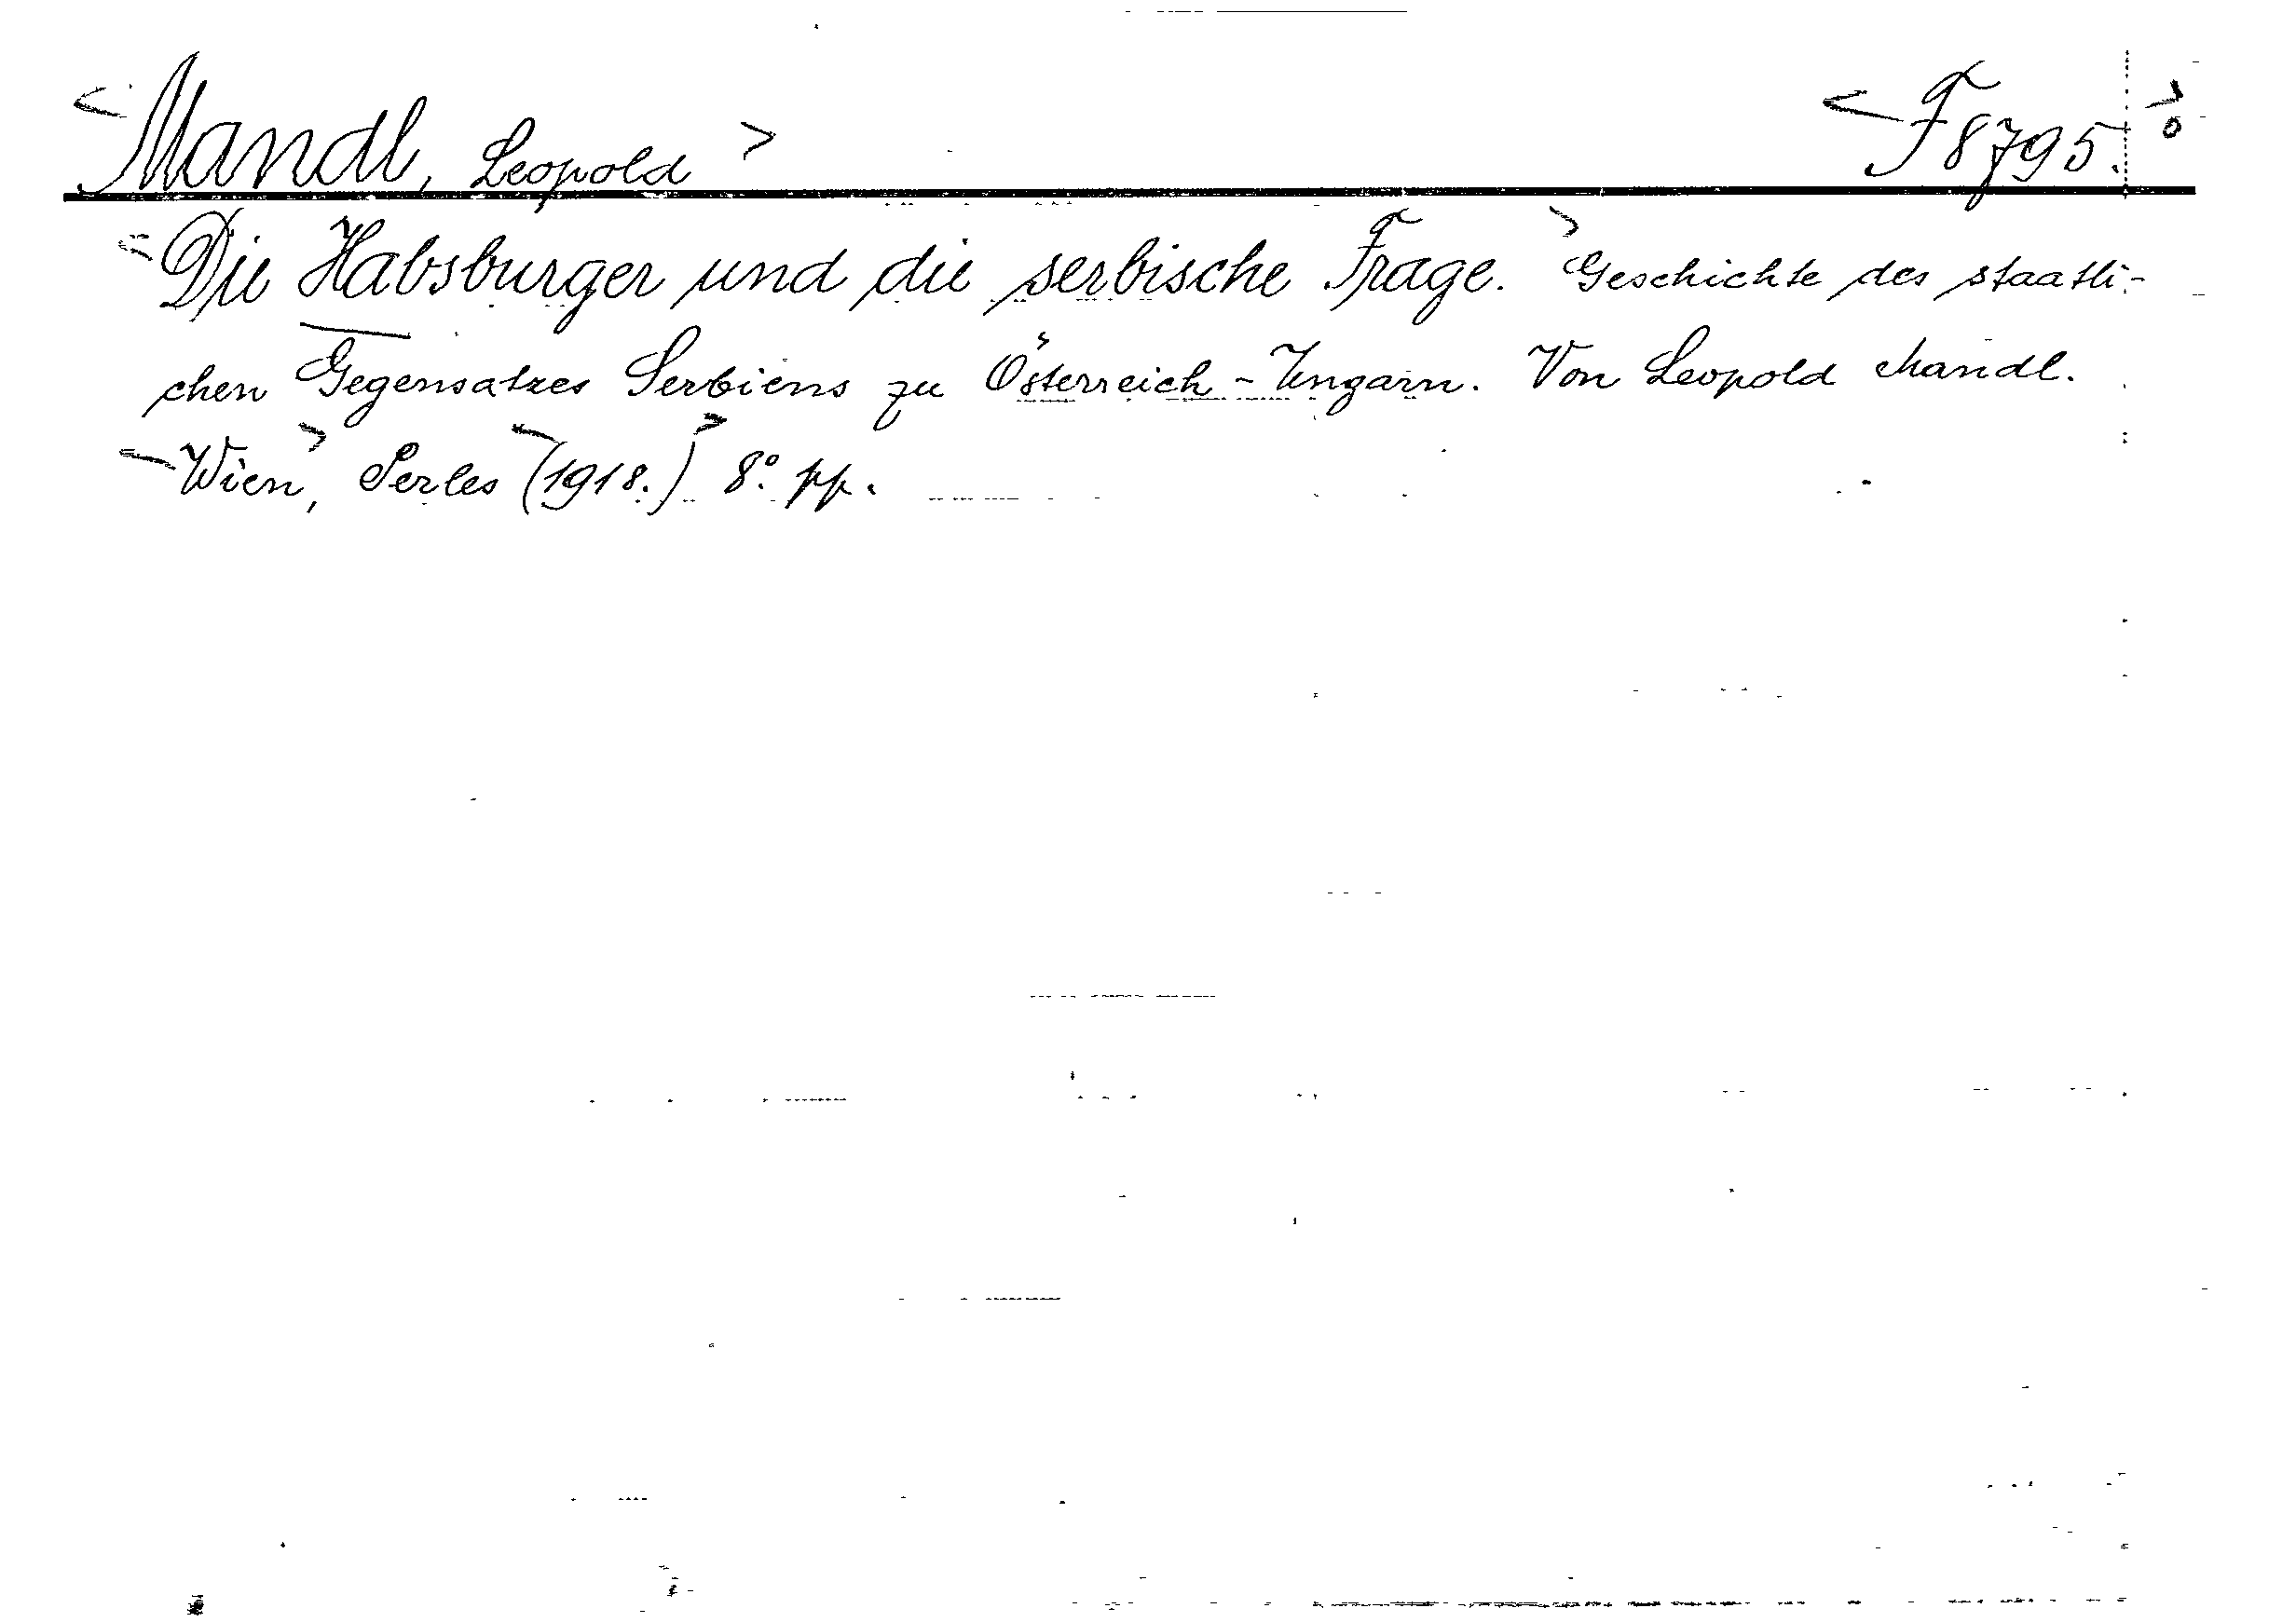 <Mandl, Leopold> <F 8795.>
<Die Habsburger und die serbische Frage.> Geschichte des staatli-
chen Gegensatzes Serbiens zu Österreich-Ungarn. Von Leopold Mandl.
<Wien>, Perles <(1918.)> 8° pp.